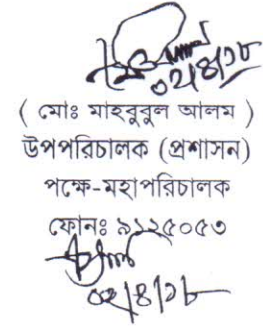 ০২/৪/১৮
( মোঃ মাহবুবুল আলম )
উপপরিচালক (প্রশাসন)
পক্ষে-মহাপরিচালক
ফোনঃ ৯১২৫০৫৩
০২/৪/১৮